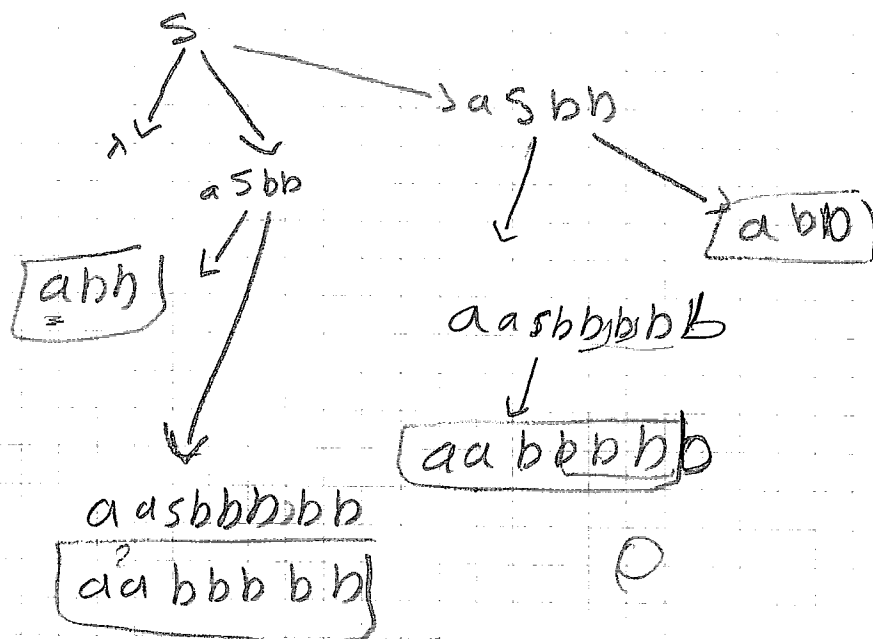 S
a S bb
λ
a S bb
abb
abb
aasbbbbb
aabbbbb
aasbbbbb
aabbbbb